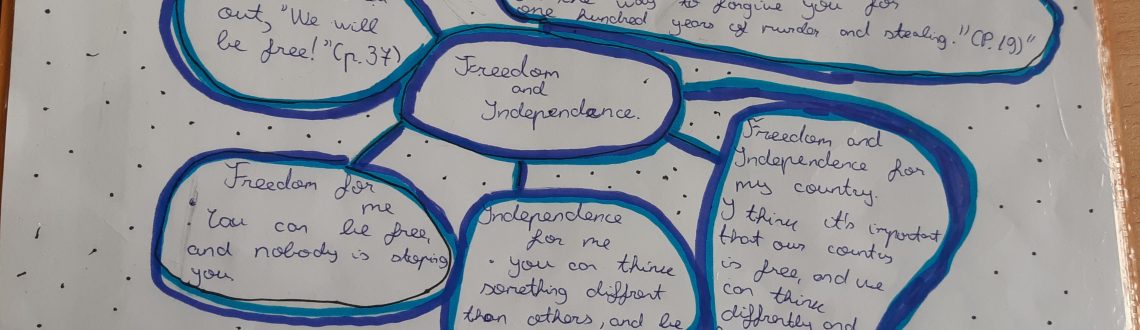 out, "We will
be free!" (p.37)
to forgive you for
one hundred years of murder and stealing." (P.19)"
Freedom
and
Independance.
Freedom for
me
• You can be free,
and nobody is stoping
you
Independence
for me
• you can think
something diffrent
than others, and be
Freedom and
Independence for
my country.
I think it's important
that our country
is free, and we
can think
diffrently and